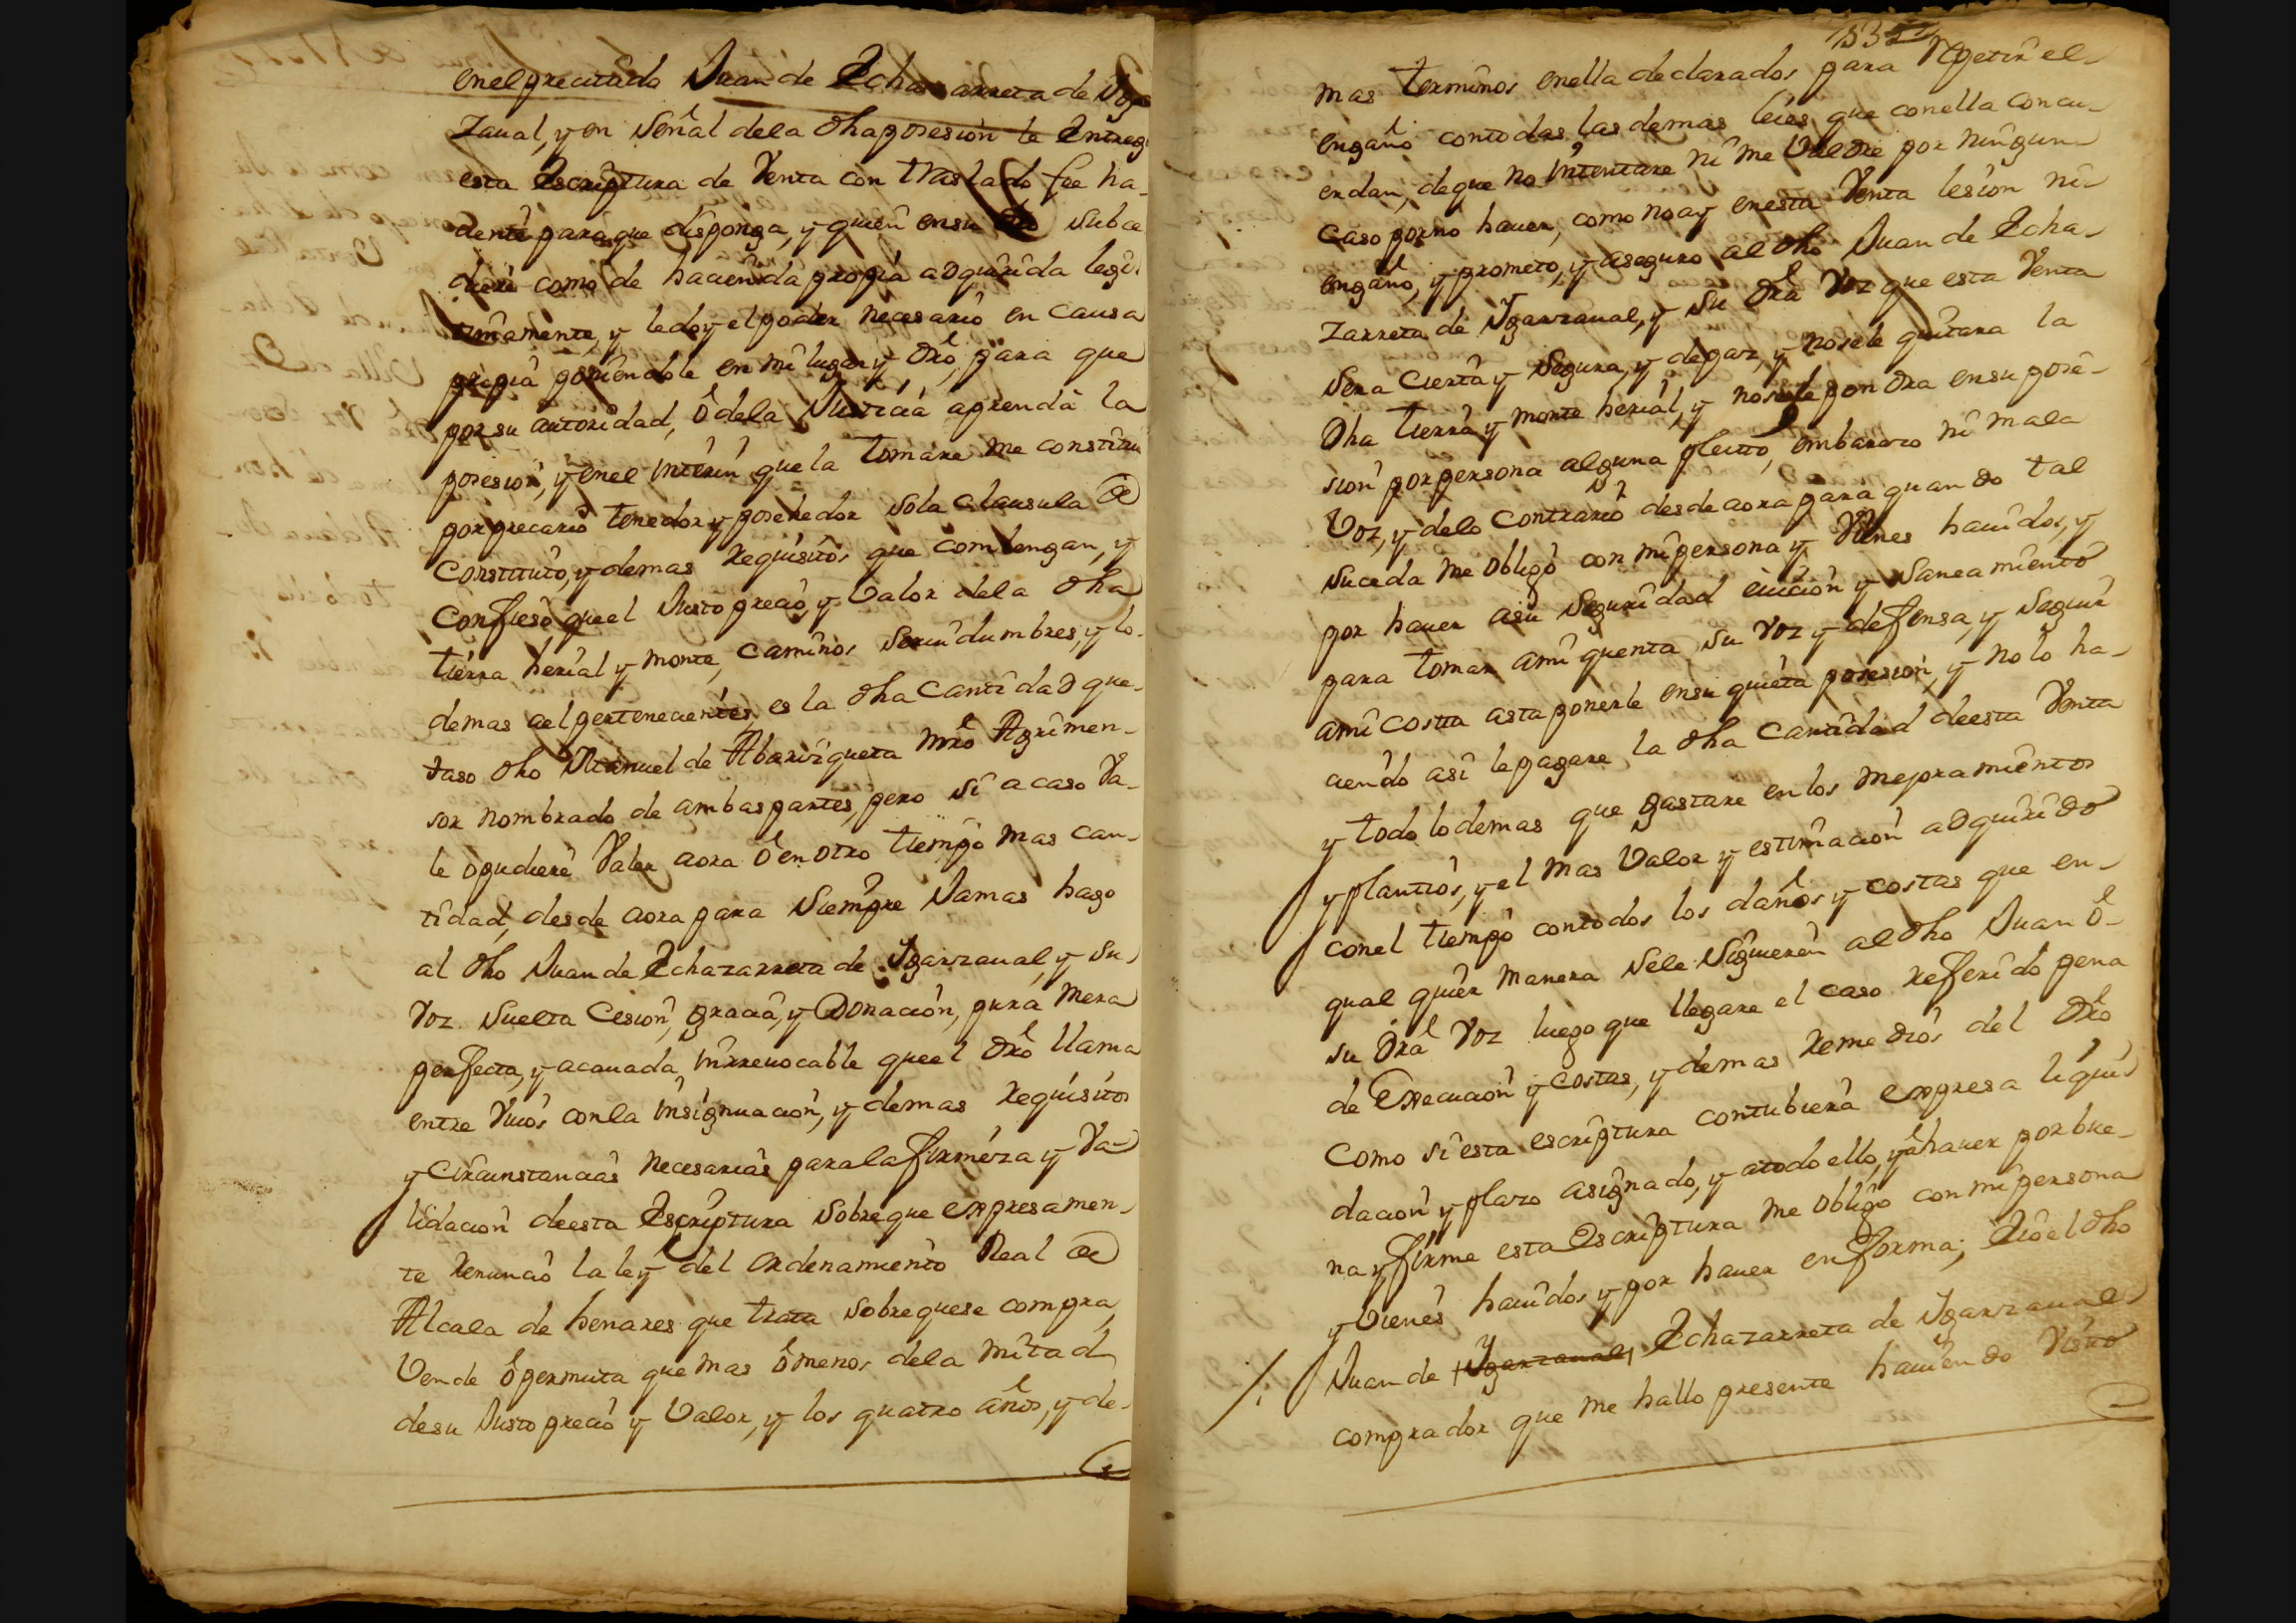 en el precitado Juan de Echazarreta de Ygar
zaual, y en señal dela dha posesion le entreg
esta Escriptura de Venta con traslado fee ha-
ciente para que disponga, y quien en su dro subce
diere como de hacienda propia adquirida legi-
timamente, y le doy el poder necesario en causa
propia poniendole en mi lugar y dro, para que
por su autoridad, ó dela Justicia aprenda la
posesion, y en el interin que la tomare me constitui
por precario tenedor y posehedor sola clausula de
Constituto, y demas requisitos que combengan, y
Confieso que el Justo precio, y Valor dela dha
tierra herial y monte, caminos seruidumbres, y lo
demas a el perteneciente, es la dha Cantidad que
taso dho Manuel de Abarizqueta Mro Agrimen-
sor nombrado de ambas partes, pero si acaso Va-
le o pudiere Valer aora ó en otro tiempo mas can-
tidad, desde aora para siempre Jamas hago
al dho Juan de Echazarreta de Ygarzaual, y su
Voz suelta Cesion, gracia, y Donacion, pura mera
perfecta, y acauada inrreuocable que el dro llama
entre Viuos con la insignuacion, y demas requisitos
y circunstancias necesarias para la firmeza y Va-
lidacion de esta Escriptura sobre que expresamen-
te renuncio la ley del ordenamiento Real de
Alcala de henares que trata sobre que se compra,
Vende ó permuta que mas ó menos dela mitad
de su Justo precio y Valor, y los quatro años, y de-
mas terminos en ella declarados para repetir el
engaño con todas las demas leies que con ella concu-
erdan, de que no intentare ni me Valdre por ningun
Caso por no hauer, como no ay en esta Venta lesion ni
engaño, y prometo, y aseguro al dho Juan de Echa-
zarreta de Ygarzaual, y su dra Voz que esta Venta
sera Cierta y segura, y de paz, y no se le quitara la
dha tierra y monte herial, y no se le pondra en su pose-
sion por persona alguna pleito, embarazo ni mala
Voz, y delo contrario desde aora para quando tal
suceda me obligo con mi persona y Vienes hauidos, y
por hauer asu seguridad euicion y saneamiento
para tomar ami quenta su voz y defensa, y seguir
ami costta asta ponerle en su quieta posesion, y no lo ha-
ciendo asi le pagare la dha Cantidad de esta Venta
y todo lo demas que gastare en los mejoramientos
y plantios, y el mas Valor y estimacion adquirido
con el tiempo con todos los daños y costas que en
qual quier manera se le siguieren al dho Juan ó
su dra Voz luego que llegare el caso referido pena
de Execucion y costas, y demas remedios del dro
Como si esta escriptura contubiera expresa liqui-
dacion y plazo asignado, y a todo ello, y á hauer por bue-
na y firme esta Escriptura me obligo con mi persona
y Vienes hauidos y por hauer en forma; E io el dho
Juan de Ygarzaual, Echazarreta de Ygarzaual
comprador que me hallo presente hauiendo Visto